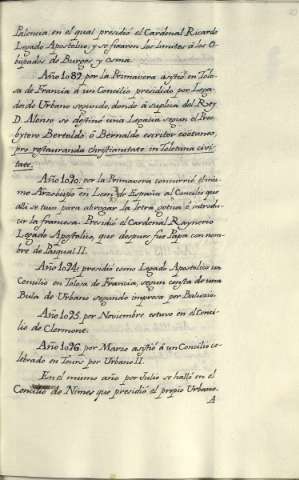 Palencia en el qual presidió el Cardenal Ricardo
Legado Apostolico, y se fixaron los limites á los O-
bispados de Burgos y Osma.
Año 1087. por la Primavera asistió en Tolo-
sa de Francia á un Concilio presidido por Lega-
dos de Urbano segundo, donde á suplica del Rey
D. Alonso se destinó una Legacia segun el Pres-
bytero Bertoldo ó Bernaldo escritor coetaneo,
pro restauranda christianitate in Toletana civi-
tate.
Año 1090. por la Primavera concurrió el mis-
mo Arzobispo en Leon de España al Concilio que
alli se tuvo para abrogar la letra gotica é introdu-
cir la francesa. Presidió el Cardenal Raynerio
Legado Apostolico, que despues fue Papa con nom-
bre de Pasqual II.
Año 1091. presidió como Legado Apostolico un
Concilio en Tolosa de Francia, segun consta de una
Bula de Urbano segundo impresa por Baluzio.
Año 1095. por Noviembre estuvo en el Conci-
lio de Clermont.
Año 1096. por Marzo asistió á un Concilio ce-
lebrado en Tours por Urbano II.
En el mismo año por Julio se halló en el
Concilio de Nimes que presidió el propio Urbano.
A